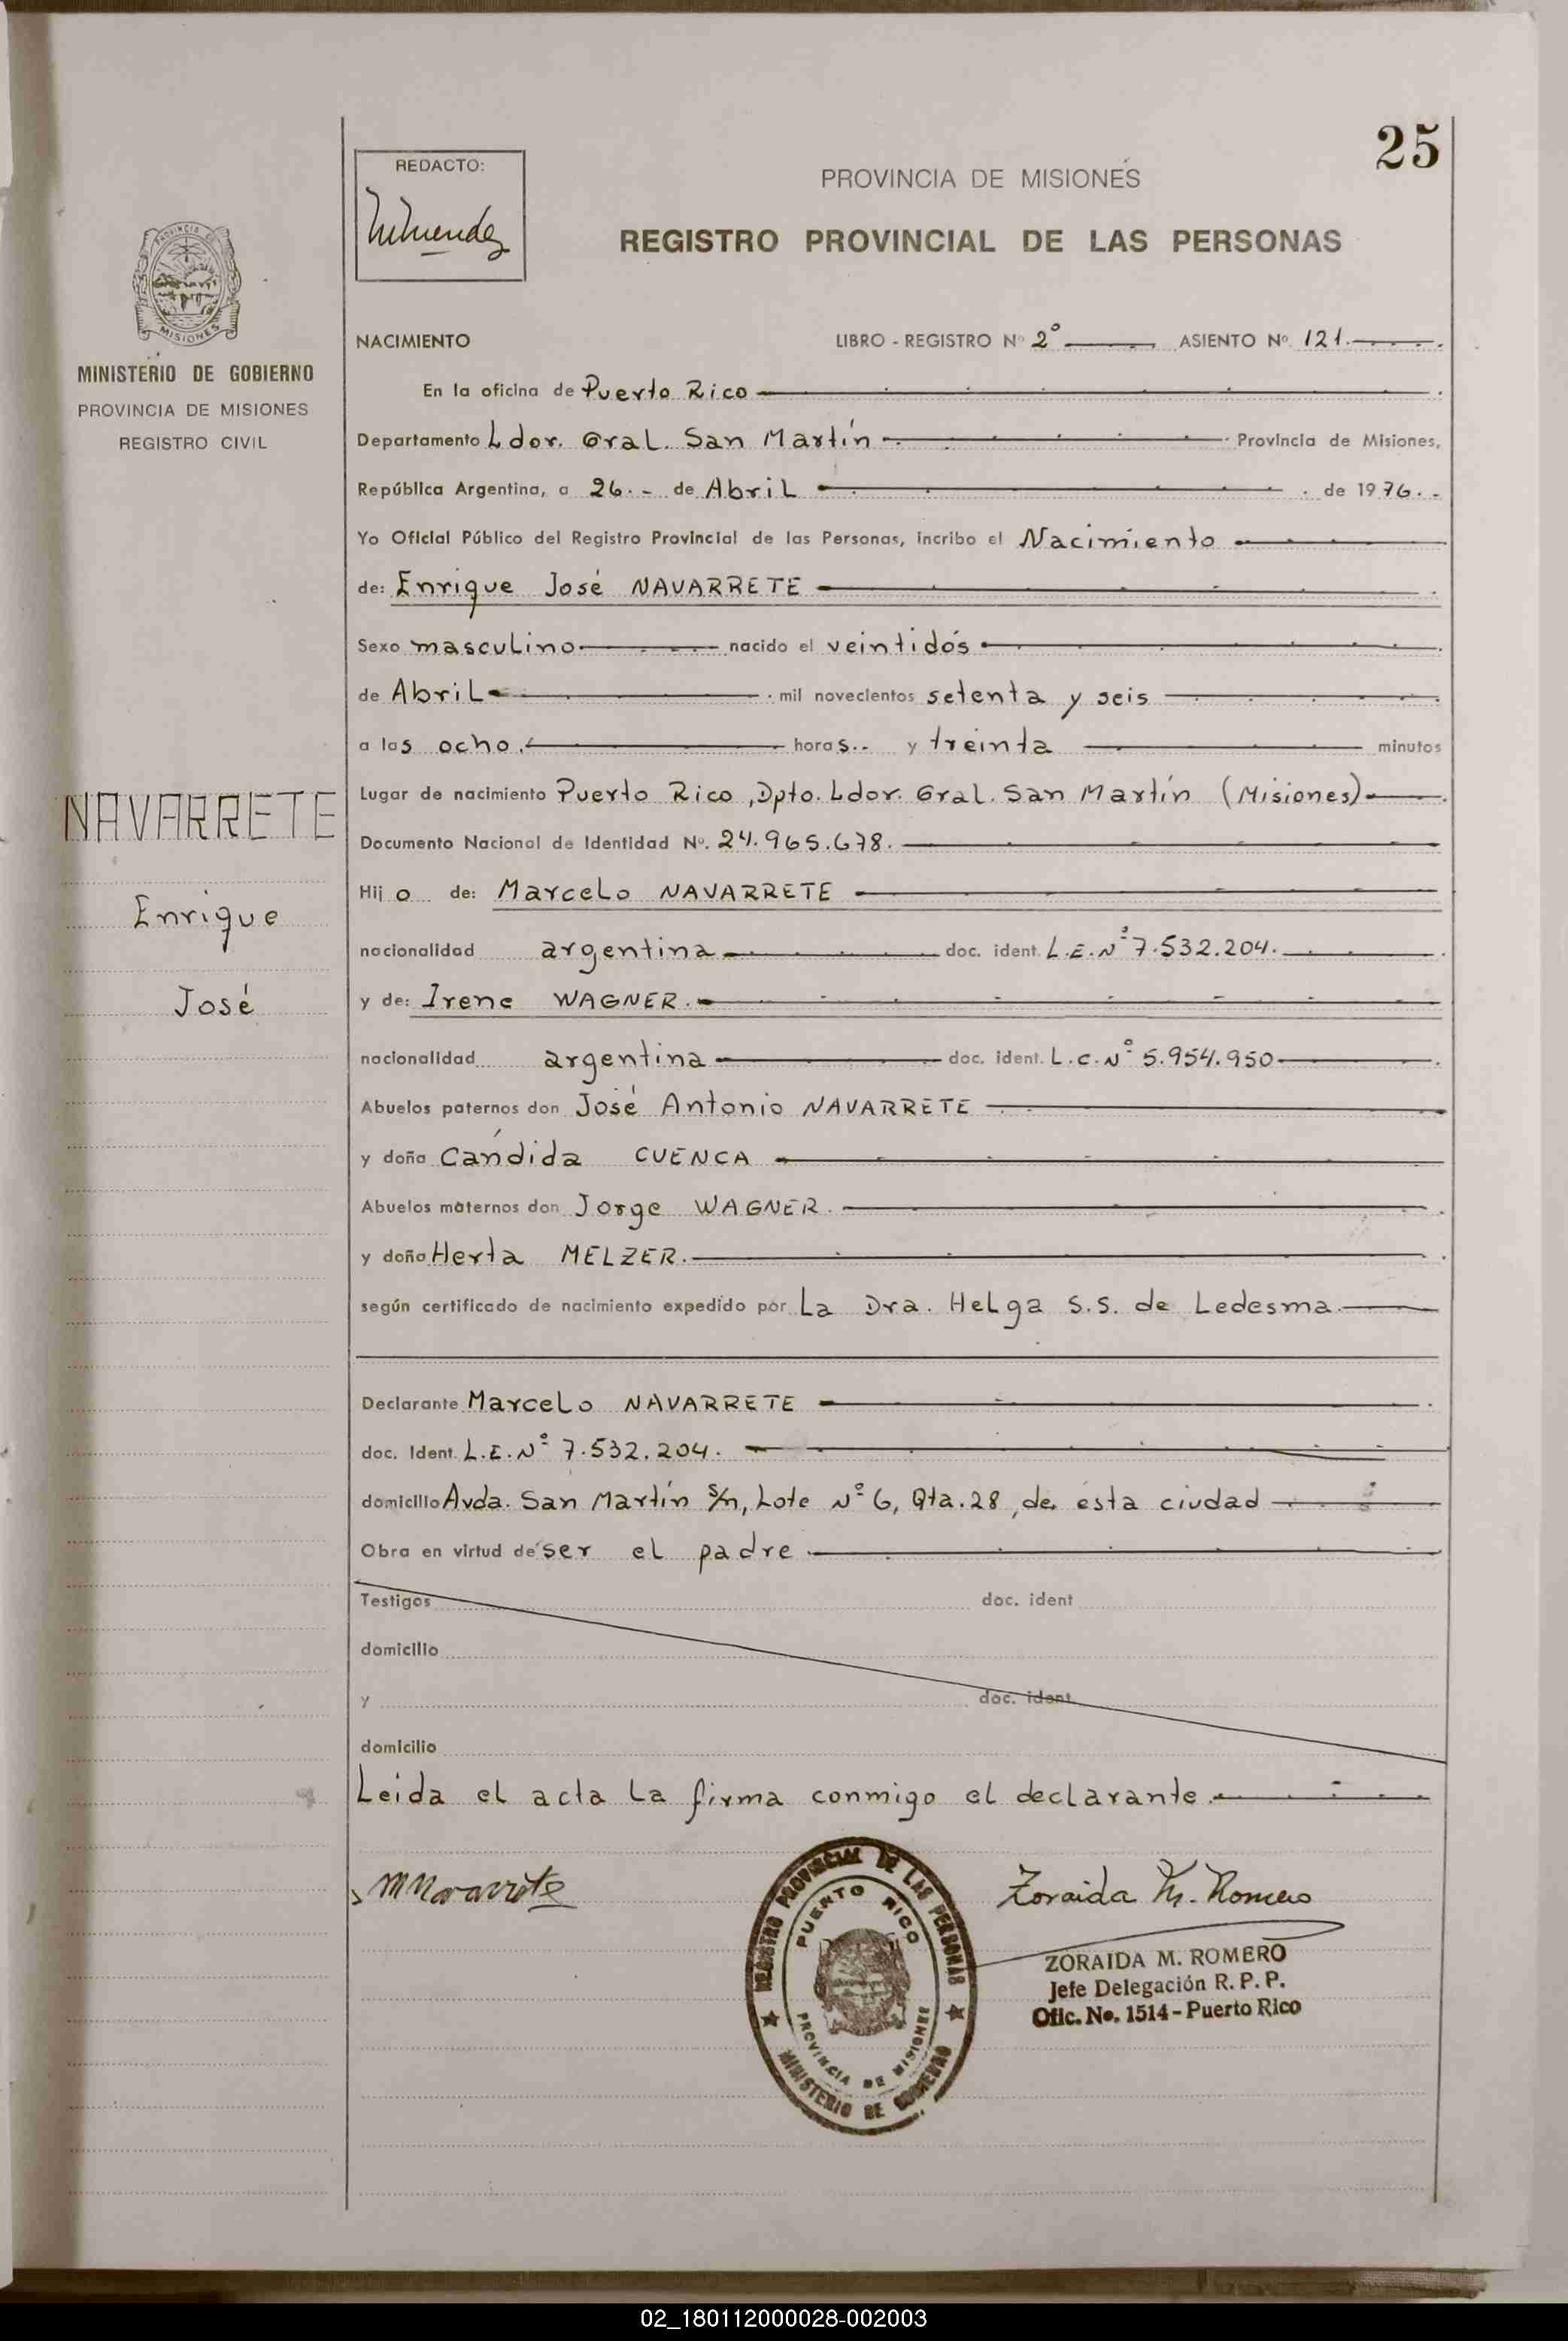 25
REDACTO:
PROVINCIA DE MISIONES
REGISTRO PROVINCIAL DE LAS PERSONAS
PROVINCIA DE
MISIONES
MINISTERIO DE GOBIERNO
PROVINCIA DE MISIONES
REGISTRO CIVIL
NACIMIENTO LIBRO - REGISTRO Nº 2º ASIENTO Nº 121.
En la oficina de Puerto Rico
Departamento Ldor. Gral. San Martín Provincia de Misiones,
República Argentina, a 26.- de Abril de 1976.-
Yo Oficial Público del Registro Provincial de las Personas, incribo el Nacimiento
de: Enrique José NAVARRETE
Sexo masculino nacido el veintidós
de Abril mil novecientos setenta y seis
a las ocho. horas.. y treinta minutos
NAVARRETE
Enrique
José
Lugar de nacimiento Puerto Rico, Dpto. Ldor. Gral. San Martín (Misiones)
Documento Nacional de Identidad Nº. 24.965.678.
Hijo de: Marcelo NAVARRETE
nacionalidad argentina doc. ident. L.E.Nº 7.532.204.
y de: Irene WAGNER.
nacionalidad argentina doc. ident. L.C.Nº 5.954.950
Abuelos paternos don José Antonio NAVARRETE
y doña Cándida CUENCA
Abuelos maternos don Jorge WAGNER.
y doña Herta MELZER.
según certificado de nacimiento expedido por La Dra. Helga S.S. de Ledesma.
Declarante Marcelo NAVARRETE
doc. Ident. L.E.Nº 7.532.204.
domicilio Avda. San Martín S/n, Lote Nº 6, Qta. 28, de ésta ciudad
Obra en virtud de ser el padre
Testigos doc. ident
domicilio
y doc. ident.
domicilio
Leida el acta la firma conmigo el declarante.
MNavarrete
Zoraida M. Romero
REGISTRO PROVINCIAL DE LAS PERSONAS
PUERTO RICO
PROVINCIA DE MISIONES
MINISTERIO DE GOBIERNO
ZORAIDA M. ROMERO
Jefe Delegación R. P. P.
Ofic. No. 1514 - Puerto Rico
02_180112000028-002003